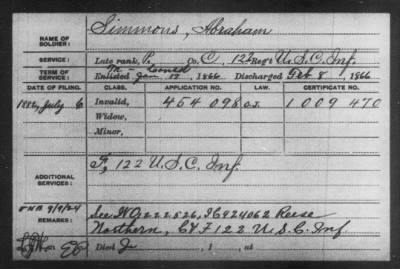 NAME OF SOLDIER: Simmons, Abraham
SERVICE: Late rank, P. Co. C, 122 Reg't U.S.C. Inf.
TERM OF SERVICE: Enlisted Jan 17, 1866 Discharged Feb 8, 1866
M - Loaned
DATE OF FILING. CLASS. APPLICATION NO. LAW. CERTIFICATE NO.
1882, July 6 Invalid, 454 098 1009 470
Widow,
Minor,
ADDITIONAL SERVICES: F, 122 U.S.C. Inf.
9/9/24
REMARKS: See 222526, 924062 Reese
Northern, C & F 122 U.S.C. Inf
Died , 1 , at